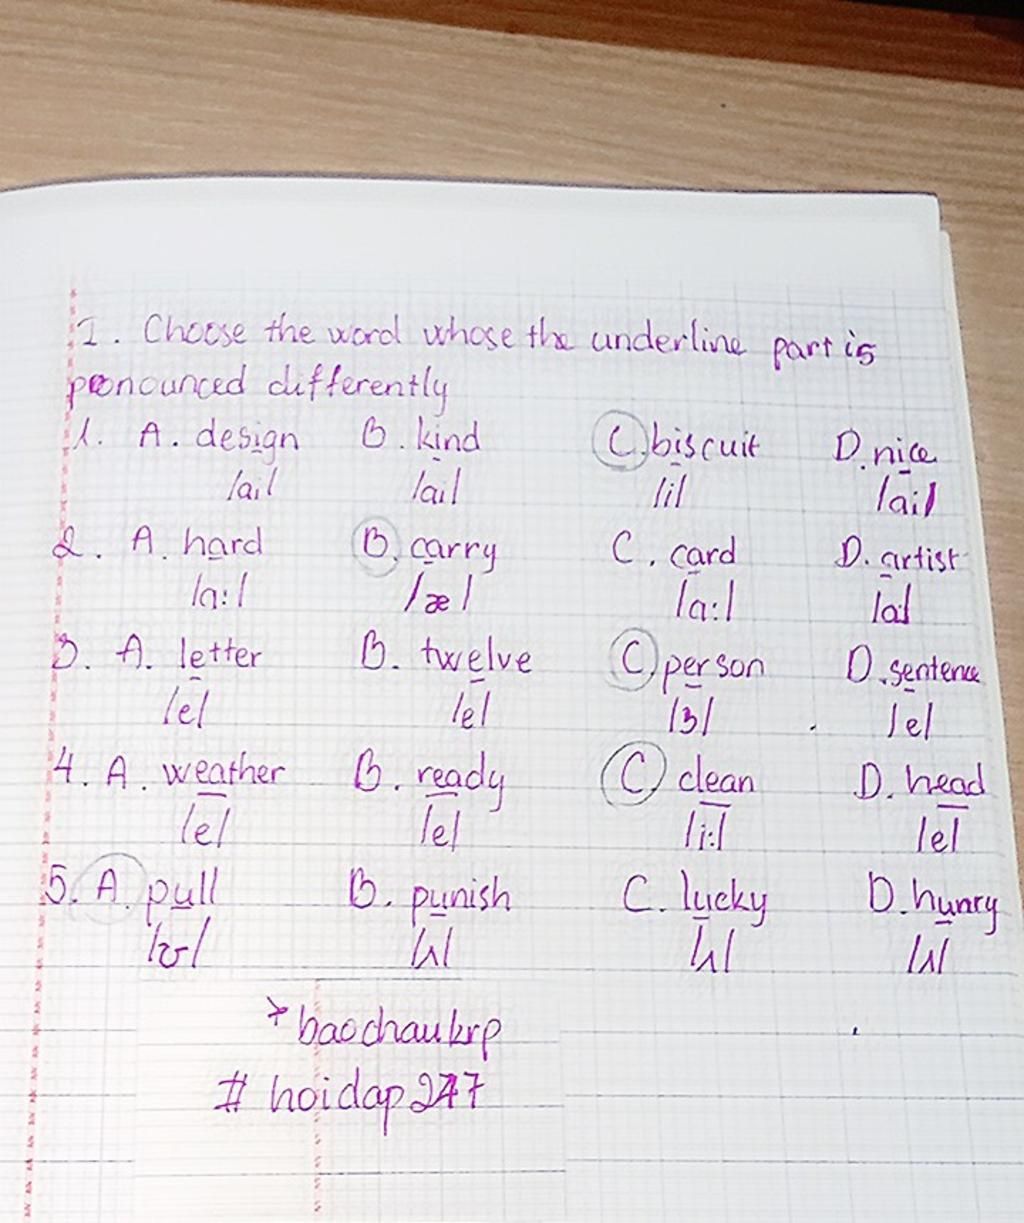 I. Choose the word whose the underline part is
pronounced differently
1. A. design B. kind C. biscuit D. nice
/ai/ /ai/ /i/ /ai/
2. A. hard B. carry C. card D. artist
/a:/ /æ/ /a:/ /a:/
3. A. letter B. twelve C person D. sentence
/e/ /e/ /3/ /e/
4. A. weather B. ready C clean D. head
/e/ /e/ /i:/ /e/
5. A. pull B. punish C. lucky D. hunry
/ʊ/ /ʌ/ /ʌ/ /ʌ/
* baochaukrp
# hoidap247